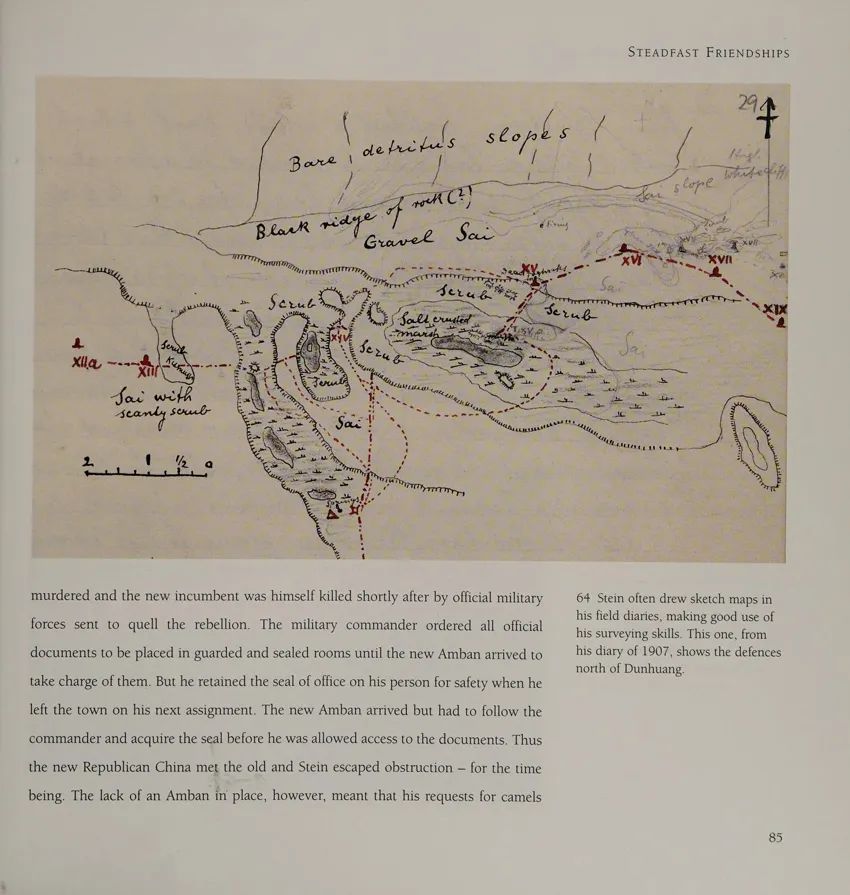 STEADFAST FRIENDSHIPS
29
Bare detritus slopes
High
Sai slope
Black ridge of rock (?)
Gravel Sai
XV
XVI
XVII
XIX
Scrub
Scrub
Scrub
Sai
Salt crusted
marsh
XIV
Scrub
Sai
XIIa
XIII
Scrub
Scrub
Sai with
scanty scrub
Sai
2 1 1/2 0
murdered and the new incumbent was himself killed shortly after by official military
forces sent to quell the rebellion. The military commander ordered all official
documents to be placed in guarded and sealed rooms until the new Amban arrived to
take charge of them. But he retained the seal of office on his person for safety when he
left the town on his next assignment. The new Amban arrived but had to follow the
commander and acquire the seal before he was allowed access to the documents. Thus
the new Republican China met the old and Stein escaped obstruction – for the time
being. The lack of an Amban in place, however, meant that his requests for camels
64 Stein often drew sketch maps in
his field diaries, making good use of
his surveying skills. This one, from
his diary of 1907, shows the defences
north of Dunhuang.
85